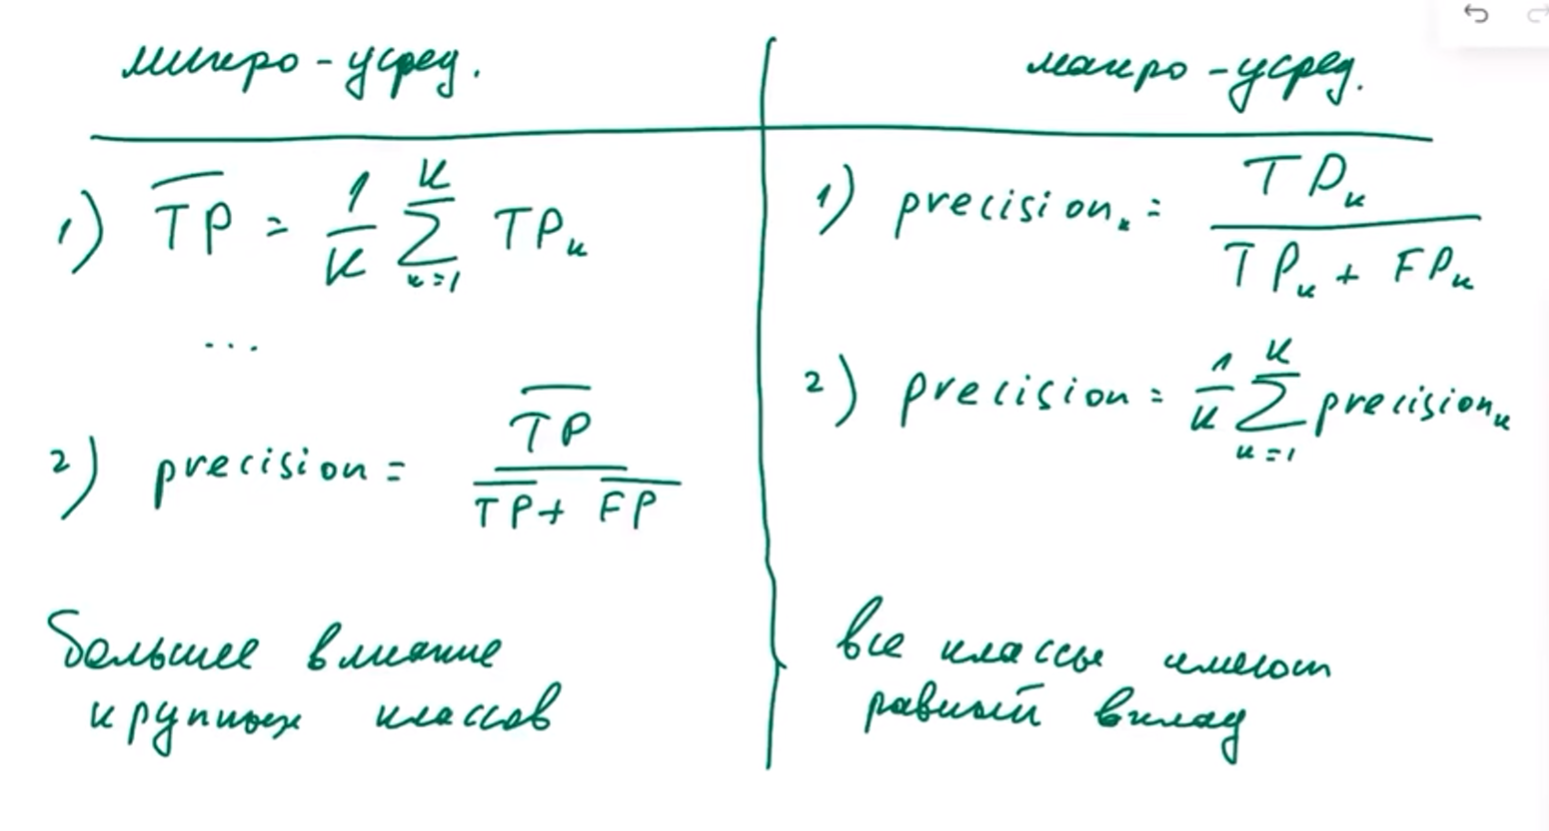 микро-усред.
1) T̅P̅ = 1/K ∑_{k=1}^{K} TP_k
...
2) precision = T̅P̅ / (T̅P̅ + F̅P̅)
большее влияние
крупных классов
макро-усред.
1) precision_k = TP_k / (TP_k + FP_k)
2) precision = 1/K ∑_{k=1}^{K} precision_k
все классы имеют
равный вклад